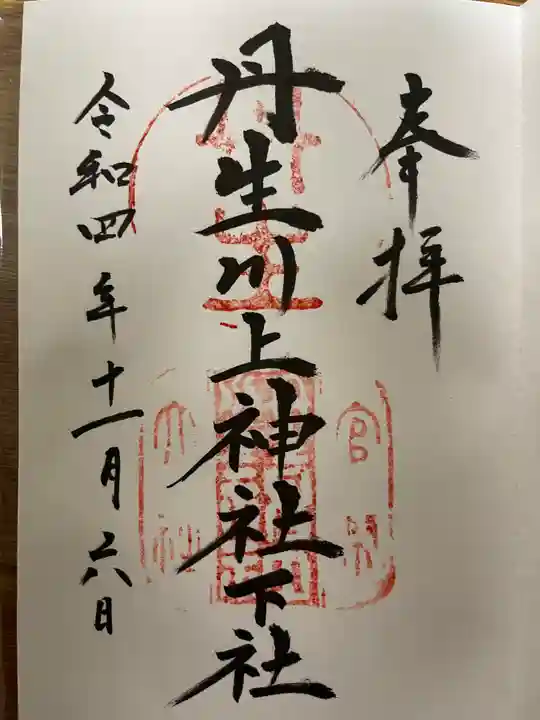 奉拝
丹生川上神社下社
令和四年十一月六日
官幣
大社